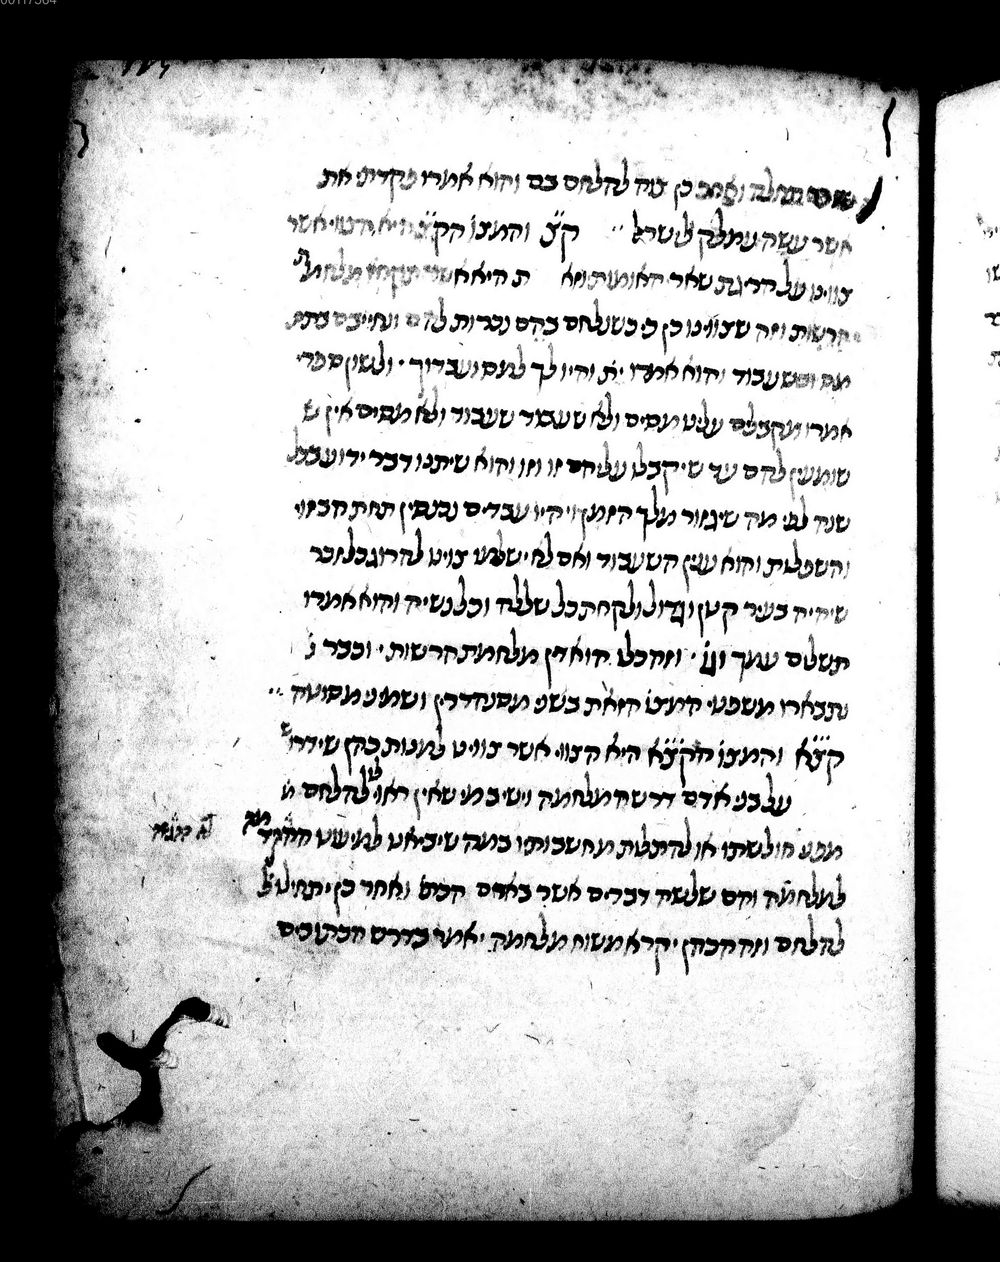 בתחלה ואחר כן צוה להלחם בם והוא אמרו פקדתי את
אשר עשה עמלק לישראל קצ והמצוֹ הקצ היא הצווי אשר
צווינו על הריגת שאר האומות ת היא אשר מלחמת
הרשות וזה שצווינו כן כי כשנלחם בהם נכרות להם ונחייבם בתת
מס ושעבוד והוא אמרו ית והיו לך למס ועבדוך ולשון ספרי
אמרו מקבלים עלינו מסים ולא שעבוד שעבוד ולא מסים אין
שומעין להם עד שיקבלו עליהם זו וזו והוא שיתנו דבר ידוע בכל
שנה לפי מה שיגזור מלך הזמן ויהיו עבדים נכנסין תחת הבזוי
והשפלות והוא ענין השעבוד ואם לא ישלמו צוינו להרוג כל זכר
שיהיה בעיר קטן וגדול ולקחת כל שללה וכל נשיה והוא אמרו
תשלים עמך וגוֹ וזה כלו הוא דין מלחמת הרשות וכבר
נתבארו משפטי המצוֹ הזאת בשני מסנהדרין ושמיני מסוטה
קצא והמצוֹ הקצא היא הצווי אשר צווינו למנות כהן שידרוש
על בני אדם דרשה מלחמה וישיב מי שאין ראוי להלחם
מפני חולשתו או להתלות מחשבותיו במה שיביאנו למיעוט
למלחמה והם שלשה דברים אשר באדם הכתוֹ ואחר כן יתחילו
להלחם וזה הכהן יקרא משוח מלחמה יאמר בדרש הכתובים